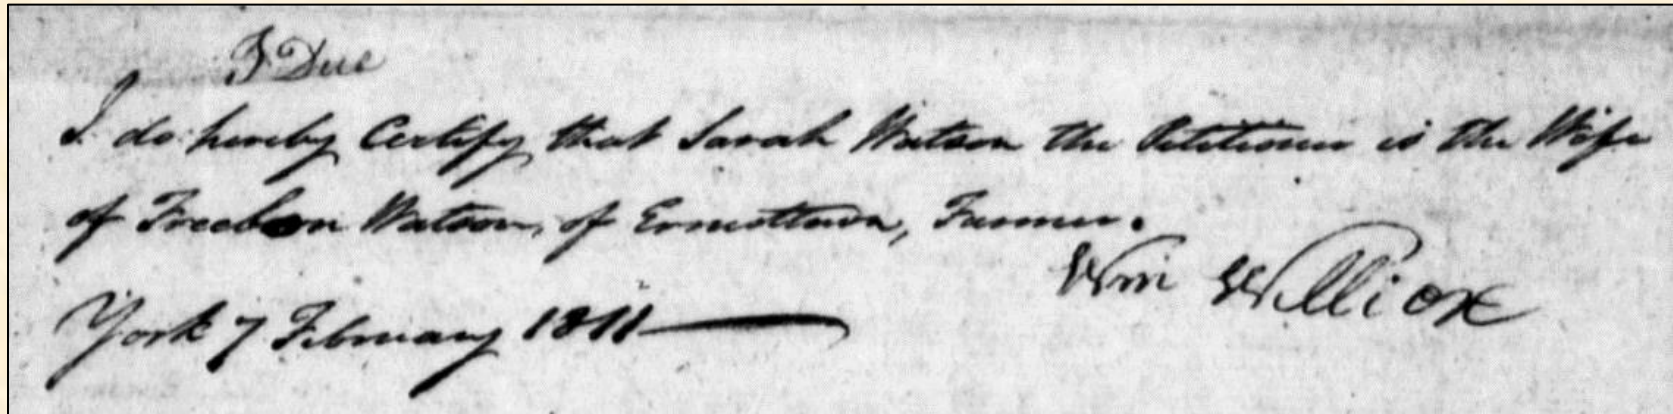 Due
I do hereby Certify that Sarah Watson the Petitioner is the Wife
of Freebon Watson, of Ernesttown, Farmer.
Wm Willcox
York 7 February 1811